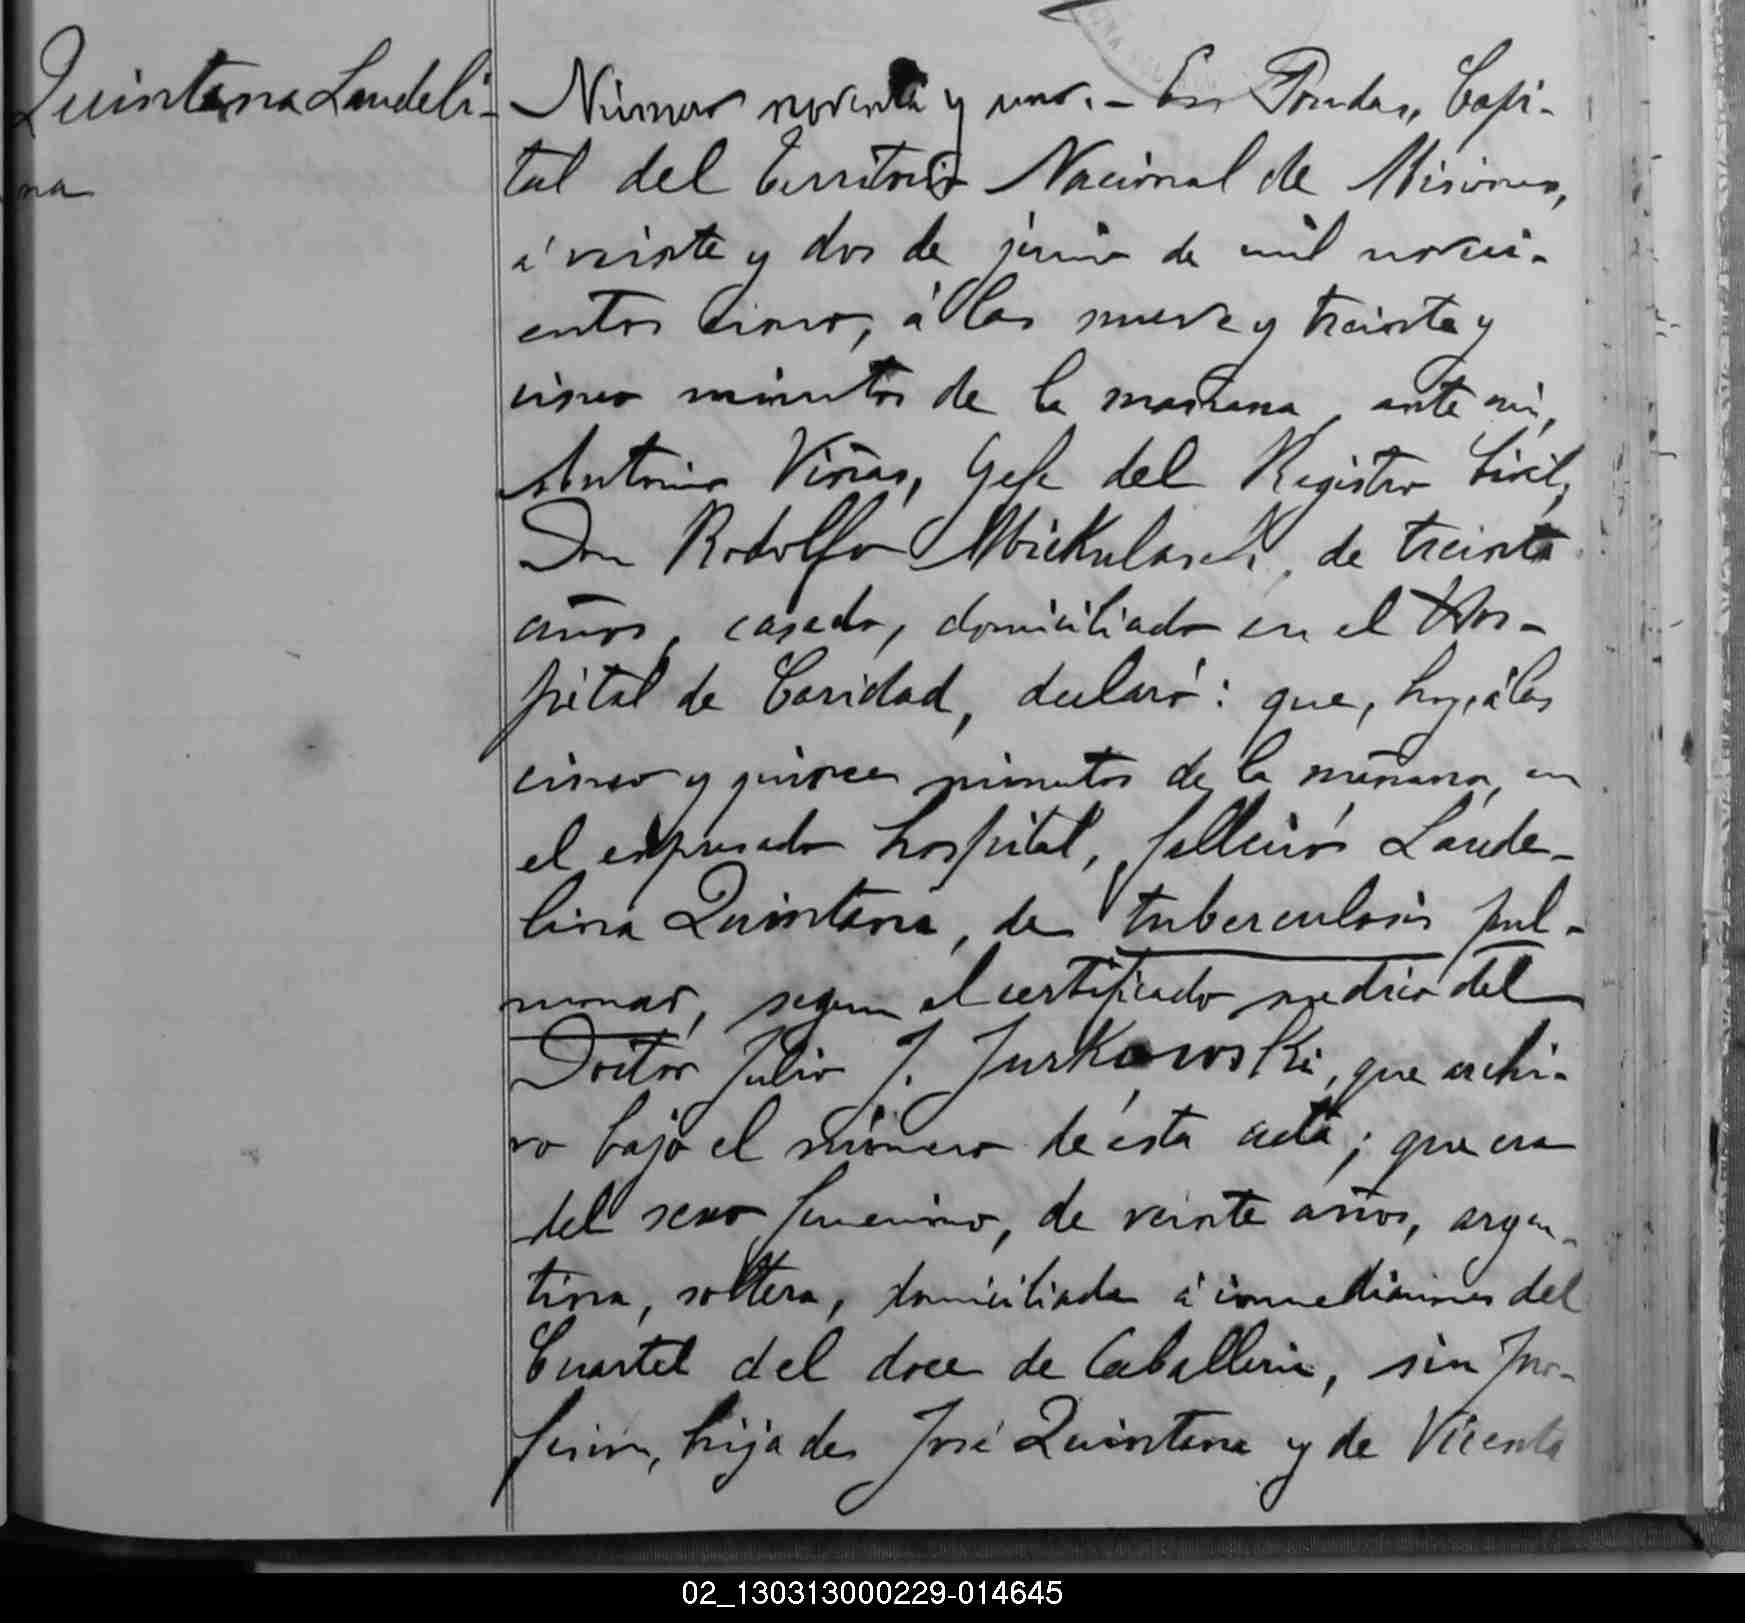 Quintana Laudeli-
na
Número noventa y uno. - En Posadas, Capi-
tal del Territorio Nacional de Misiones,
á veinte y dos de junio de mil noveci-
entos cinco, á las nueve y treinta y
cinco minutos de la mañana, ante mi,
Antonio Viñas, Gefe del Registro Civil,
Don Rodolfo Mickulasch, de treinta
años, casado, domiciliado en el Hos-
pital de Caridad, declaró: que, hoy, á las
cinco y quince minutos de la mañana, en
el expresado hospital, falleció Laude-
lina Quintana, de tuberculosis pul-
monar, segun el certificado medico del
Doctor Julio J. Jurkowski, que archi-
vo bajo el número de ésta acta; que era
del sexo femenino, de veinte años, argen-
tina, soltera, domiciliada á inmediaciones del
Cuartel del doce de Caballeria, sin pro-
fesion, hija de José Quintana y de Vicenta
02_130313000229-014645